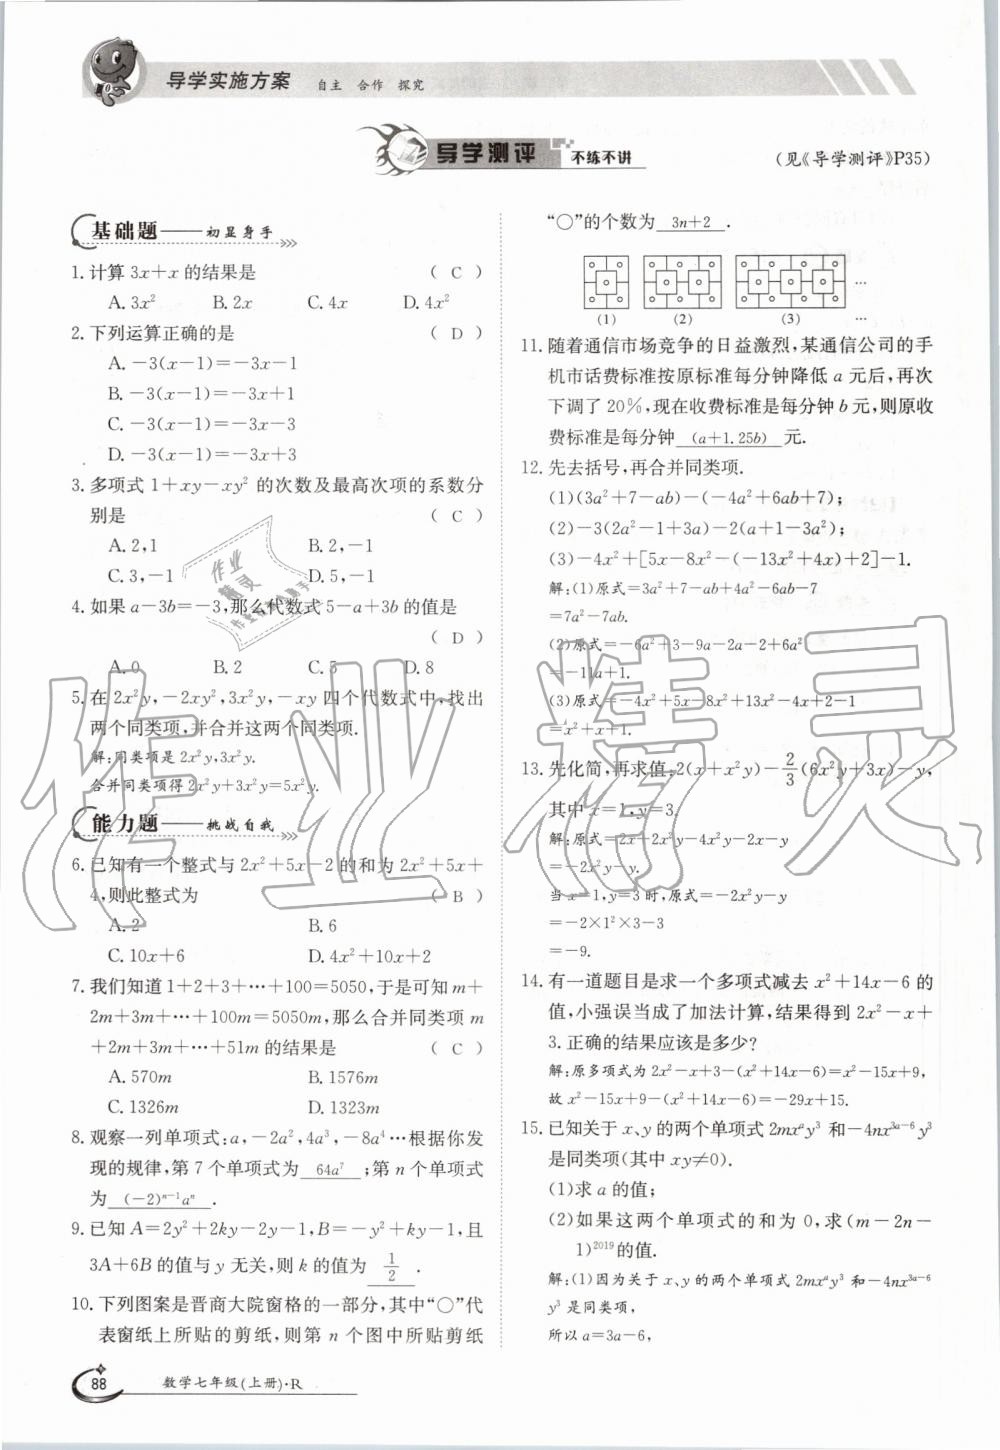 导学实施方案 自主 合作 探究
导学测评 不练不讲
(见《导学测评》P35)
基础题——初显身手
1. 计算 3x+x 的结果是 ( C )
A. 3x² B. 2x C. 4x D. 4x²
2. 下列运算正确的是 ( D )
A. -3(x-1)=-3x-1
B. -3(x-1)=-3x+1
C. -3(x-1)=-3x-3
D. -3(x-1)=-3x+3
3. 多项式 1+xy-xy² 的次数及最高次项的系数分
别是 ( C )
A. 2,1 B. 2,-1
C. 3,-1 D. 5,-1
4. 如果 a-3b=-3,那么代数式 5-a+3b 的值是
( D )
A. 0 B. 2 C. 5 D. 8
5. 在 2x²y,-2xy²,3x²y,-xy 四个代数式中,找出
两个同类项,并合并这两个同类项.
解:同类项是 2x²y,3x²y.
合并同类项得 2x²y+3x²y=5x²y.
能力题——挑战自我
6. 已知有一个整式与 2x²+5x-2 的和为 2x²+5x+
4,则此整式为 ( B )
A. 2 B. 6
C. 10x+6 D. 4x²+10x+2
7. 我们知道 1+2+3+…+100=5050,于是可知 m+
2m+3m+…+100m=5050m,那么合并同类项 m
+2m+3m+…+51m 的结果是 ( C )
A. 570m B. 1576m
C. 1326m D. 1323m
8. 观察一列单项式:a,-2a²,4a³,-8a⁴…根据你发
现的规律,第 7 个单项式为 64a⁷ ;第 n 个单项式
为 (-2)ⁿ⁻¹aⁿ .
9. 已知 A=2y²+2ky-2y-1,B=-y²+ky-1,且
3A+6B 的值与 y 无关,则 k 的值为 1/2 .
10. 下列图案是晋商大院窗格的一部分,其中“○”代
表窗纸上所贴的剪纸,则第 n 个图中所贴剪纸
“○”的个数为 3n+2 .
…
(1) (2) (3) …
11. 随着通信市场竞争的日益激烈,某通信公司的手
机市话费标准按原标准每分钟降低 a 元后,再次
下调了 20%,现在收费标准是每分钟 b 元,则原收
费标准是每分钟 (a+1.25b) 元.
12. 先去括号,再合并同类项.
(1)(3a²+7-ab)-(-4a²+6ab+7);
(2)-3(2a²-1+3a)-2(a+1-3a²);
(3)-4x²+[5x-8x²-(-13x²+4x)+2]-1.
解:(1)原式=3a²+7-ab+4a²-6ab-7
=7a²-7ab.
(2)原式=-6a²+3-9a-2a-2+6a²
=-11a+1.
(3)原式=-4x²+5x-8x²+13x²-4x+2-1
=x²+x+1.
13. 先化简,再求值:2(x+x²y)-2/3(6x²y+3x)-y,
其中 x=1,y=3.
解:原式=2x+2x²y-4x²y-2x-y
=-2x²y-y.
当 x=1,y=3 时,原式=-2x²y-y
=-2×1²×3-3
=-9.
14. 有一道题目是求一个多项式减去 x²+14x-6 的
值,小强误当成了加法计算,结果得到 2x²-x+
3. 正确的结果应该是多少?
解:原多项式为 2x²-x+3-(x²+14x-6)=x²-15x+9,
故 x²-15x+9-(x²+14x-6)=-29x+15.
15. 已知关于 x、y 的两个单项式 2mxᵃy³ 和-4nx³ᵃ⁻⁶y³
是同类项(其中 xy≠0).
(1)求 a 的值;
(2)如果这两个单项式的和为 0,求(m-2n-
1)²⁰¹⁹ 的值.
解:(1)因为关于 x、y 的两个单项式 2mxᵃy³ 和-4nx³ᵃ⁻⁶
y³ 是同类项,
所以 a=3a-6,
88 数学七年级(上册)·R
作业精灵